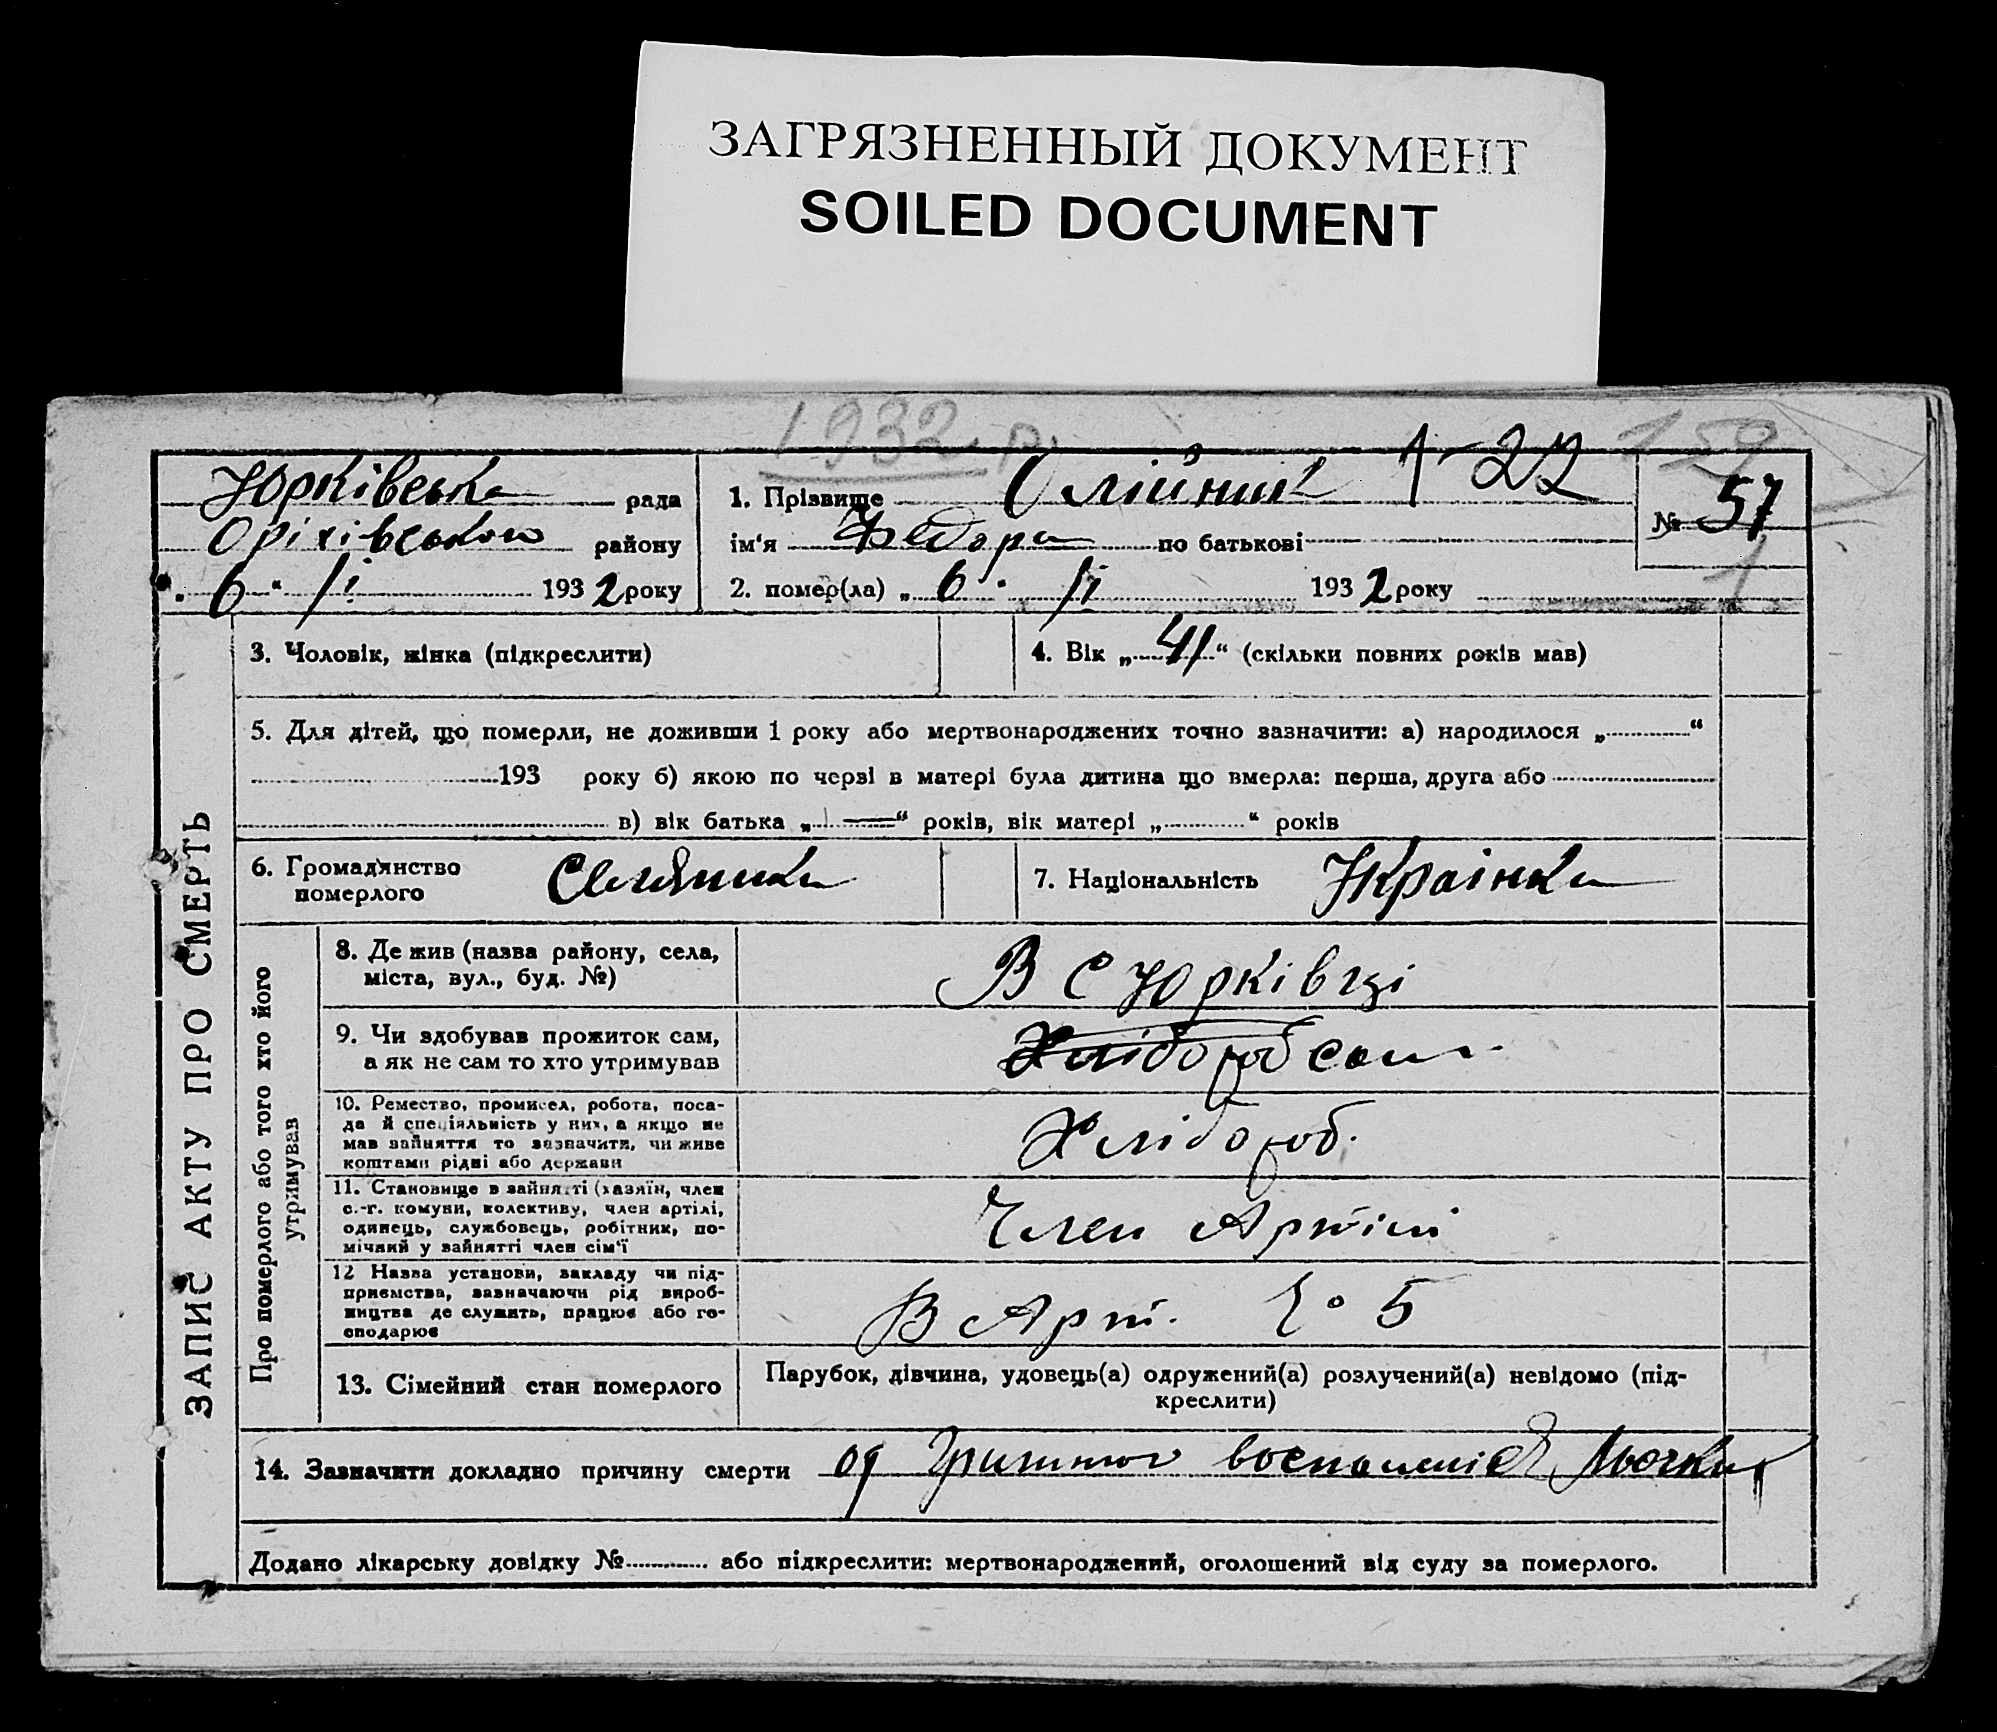 ЗАГРЯЗНЕННЫЙ ДОКУМЕНТ
SOILED DOCUMENT
1932 р.
159
Юрківська рада
Оріхівського району
6 " II 1932 року
1. Прізвище Олійник 1-22
ім'я Федора по батькові
2. помер(ла) „ 6 " II 1932 року
№ 57
1
ЗАПИС АКТУ ПРО СМЕРТЬ
3. Чоловік, жінка (підкреслити)
4. Вік „ 41 “ (скільки повних років мав)
5. Для дітей, що померли, не доживши 1 року або мертвонароджених точно зазначити: а) народилося „ “
193 року б) якою по черзі в матері була дитина що вмерла: перша, друга або
в) вік батька „ — “ років, вік матері „ “ років
6. Громадянство померлого Селянка
7. Національність Українка
Про померлого або того хто його утримував
8. Де жив (назва району, села, міста, вул., буд. №)
В С Юрківці
9. Чи здобував прожиток сам, а як не сам то хто утримував
Хлібороб сам
10. Ремество, промисел, робота, посада й спеціяльність у них, а якщо не мав зайняття то зазначити, чи живе коштами рідні або держави
Хлібороб.
11. Становище в зайнятті (хазяїн, член с.-г. комуни, колективу, член артілі, одинець, службовець, робітник, помічний у зайнятті член сім'ї
Член Артілі
12 Назва установи, закладу чи підприємства, зазначаючи рід виробництва де служить, працює або господарює
В Арт. № 5
13. Сімейний стан померлого
Парубок, дівчина, удовець(а) одружений(а) розлучений(а) невідомо (підкреслити)
14. Зазначити докладно причину смерти од воспаленіе
Додано лікарську довідку № або підкреслити: мертвонароджений, оголошений від суду за померлого.